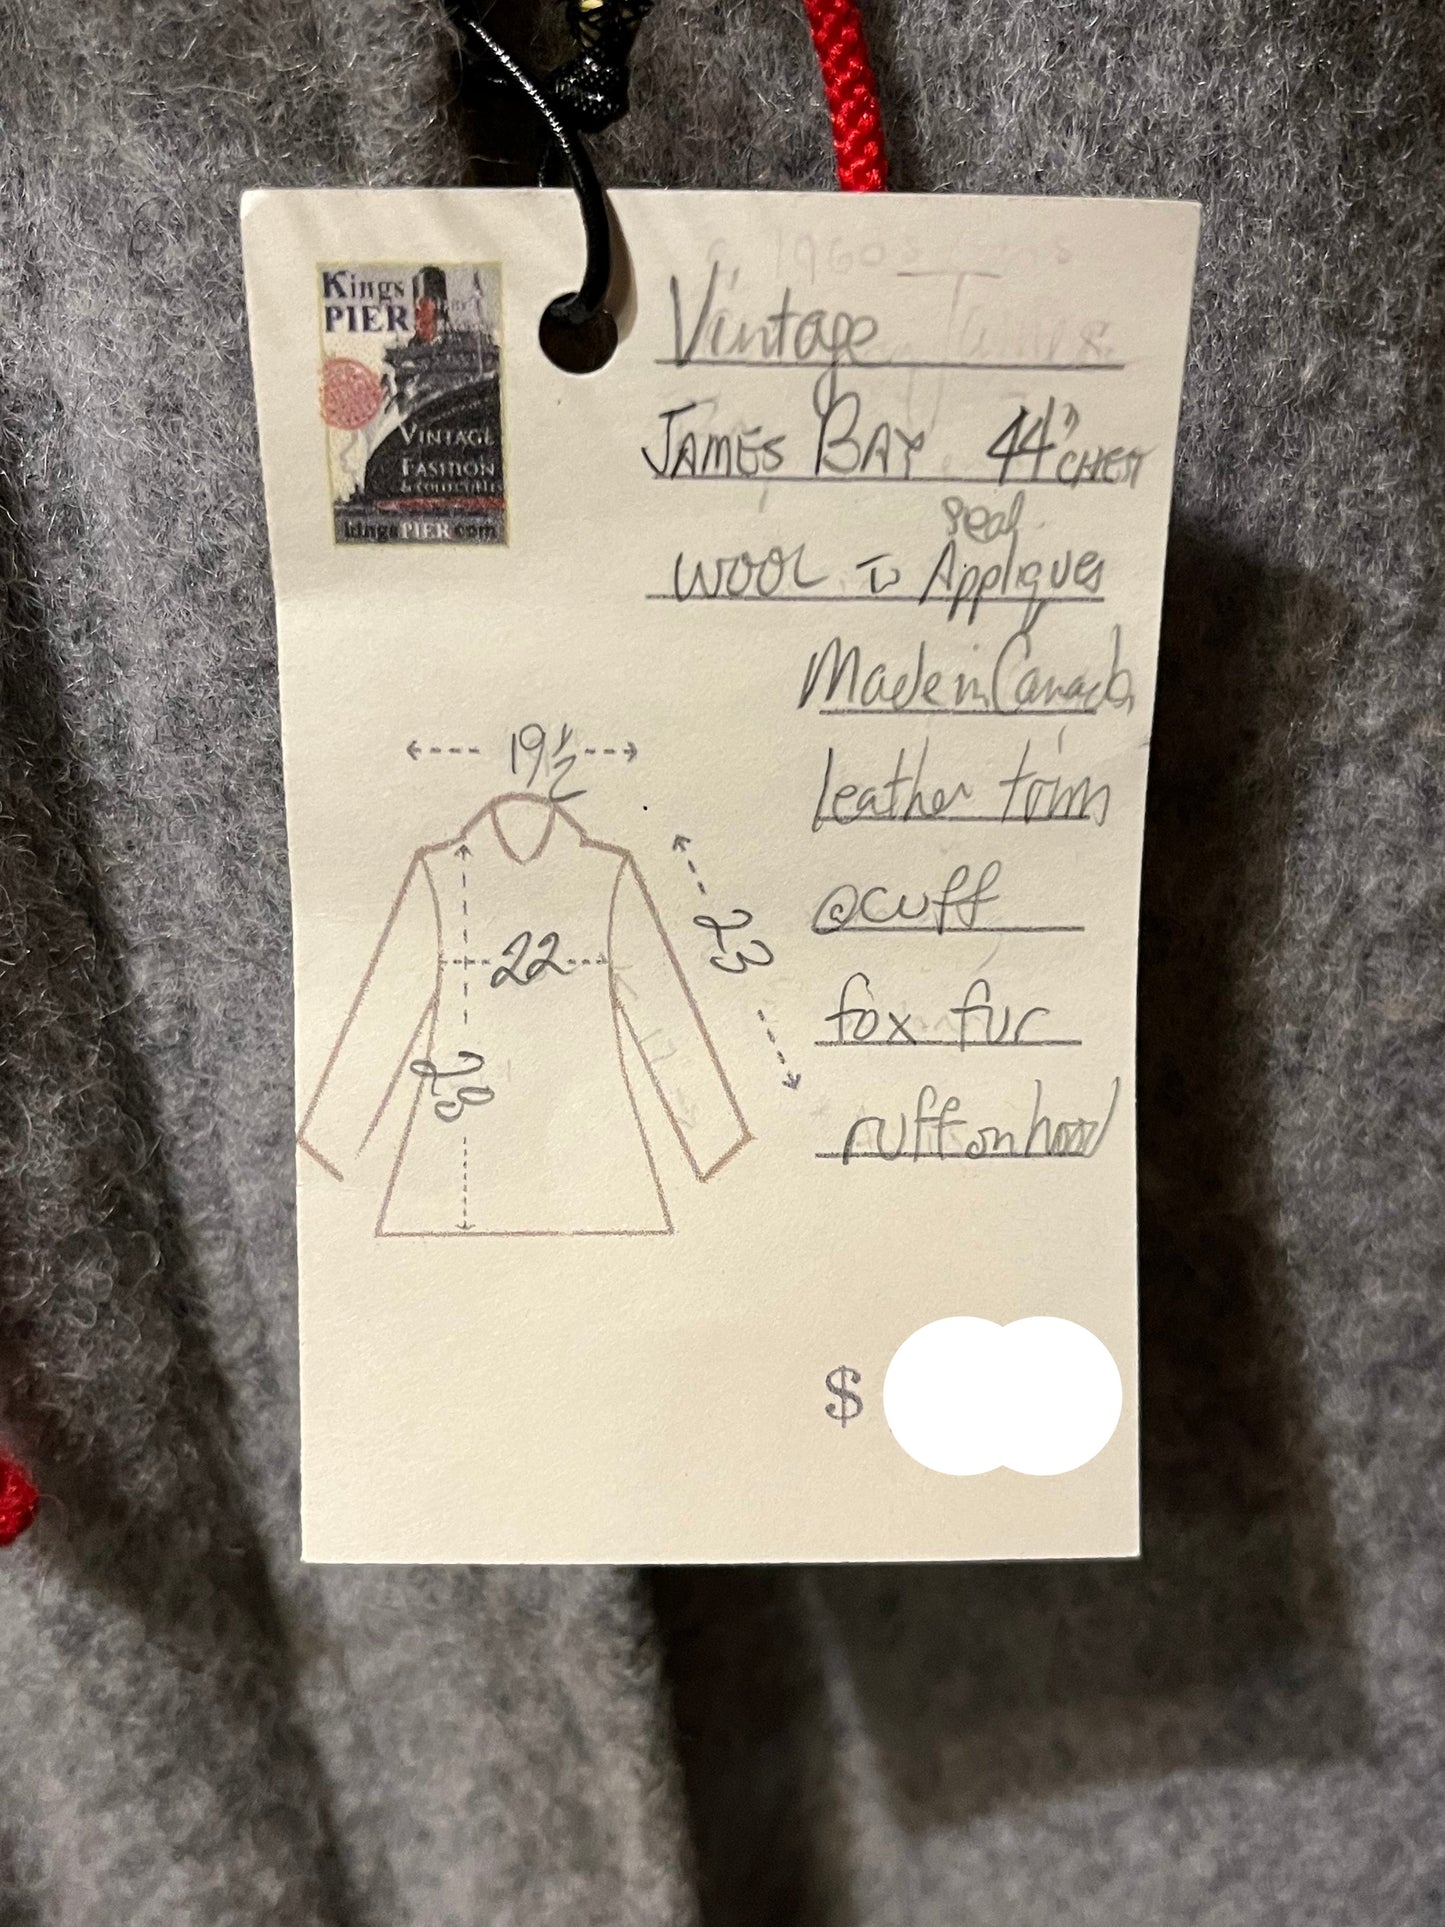 Kings
PIER
VINTAGE
FASHION
& COLLECTIBLES
kingsPIER.com
1960s
James
Vintage
JAMES BAY 44" CHEST
seal
WOOL Appliques
Made in Canada
leather trim
@cuff
fox fur
ruff on hood
19 1/2
22
23
28
$